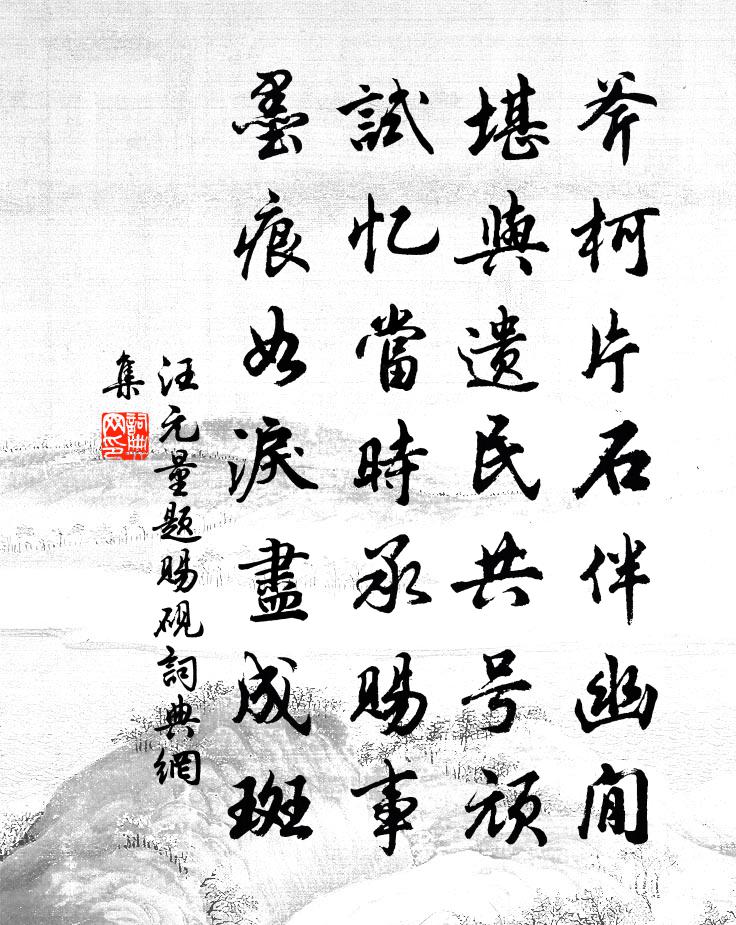 斧柯片石伴幽间
堪與遗民共号顽
試忆當時承賜事
墨痕如淚盡成斑
汪元量題賜硯詞典網
集
詞典网印